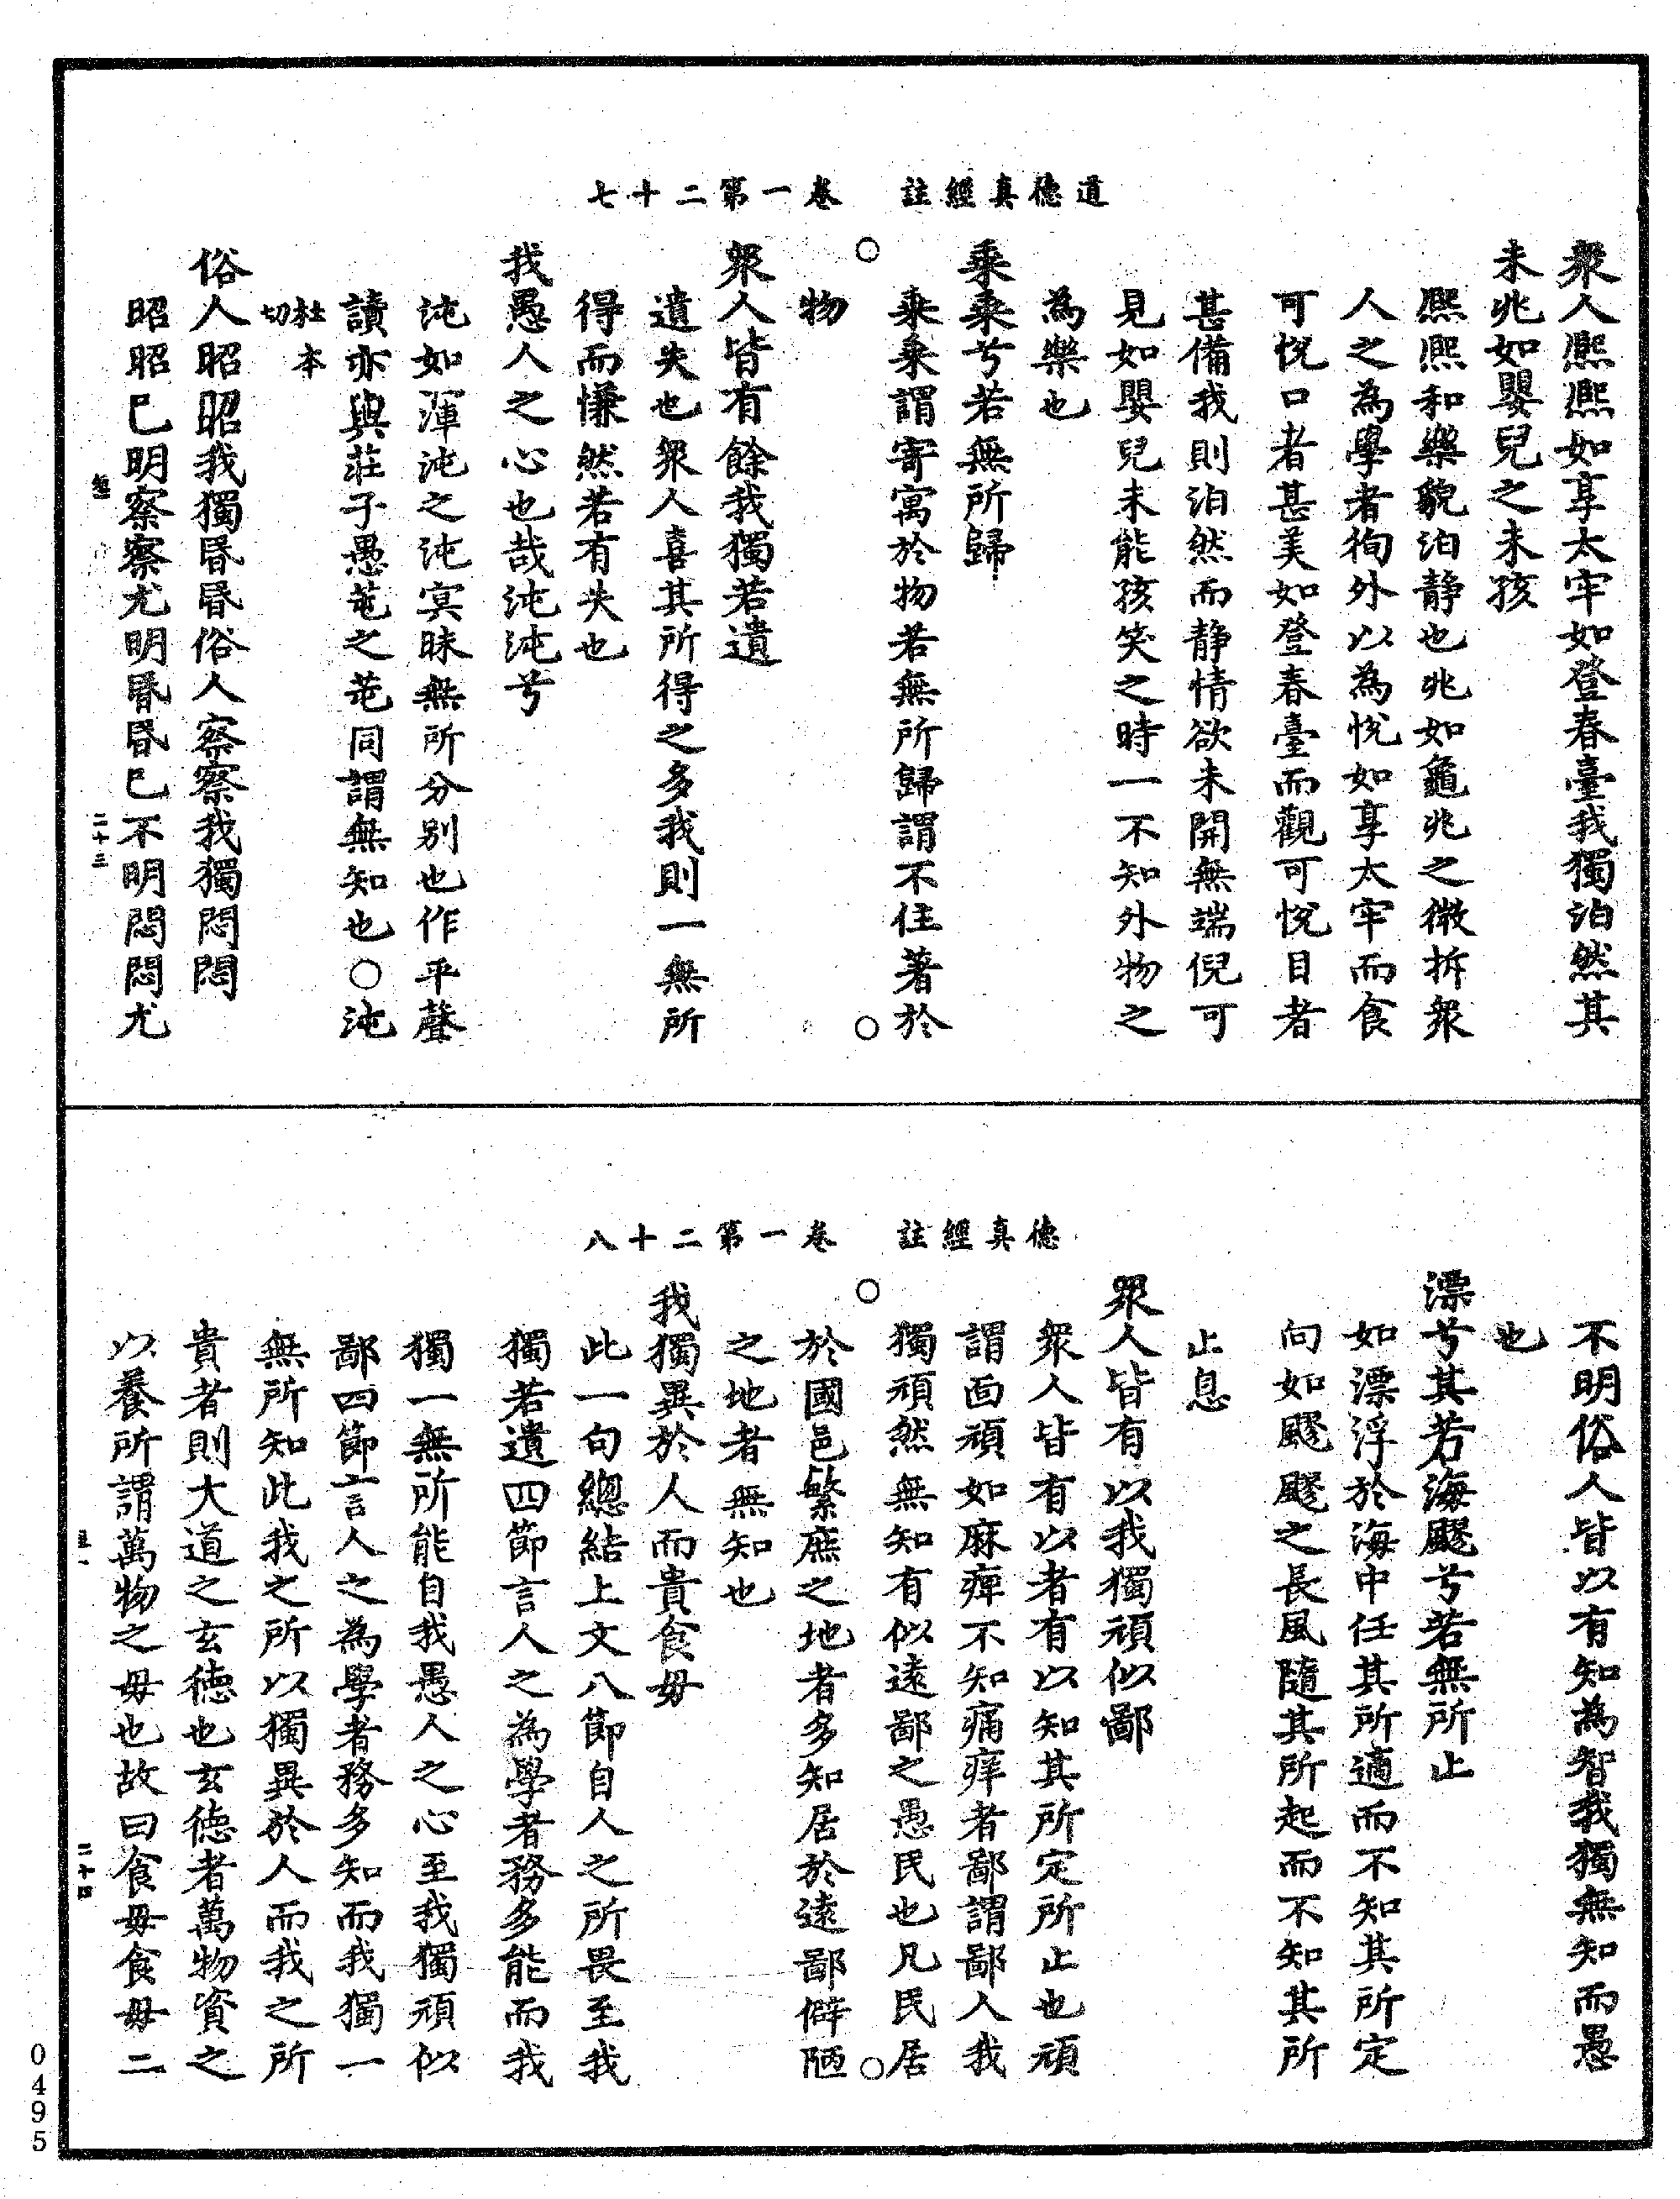 道德真經註　卷一第二十七
衆人熈熈如享太牢如登春臺我獨泊然其
未兆如嬰兒之未孩
熈熈和樂貌泊静也兆如龜兆之微拆衆
人之為學者徇外以為悅如享太牢而食
可悅口者甚美如登春臺而觀可悅目者
甚備我則泊然而静情欲未開無端倪可
見如嬰兒未能孩笑之時一不知外物之
為樂也
乗乗兮若無所歸
乗乗謂寄寓於物若無所歸謂不住著於
物
衆人皆有餘我獨若遺
遺失也衆人喜其所得之多我則一無所
得而慊然若有失也
我愚人之心也哉沌沌兮
沌如渾沌之沌冥昧無所分别也作平聲
讀亦與莊子愚芚之芚同謂無知也○沌
杜本
切
俗人昭昭我獨昬昬俗人察察我獨悶悶
昭昭已明察察尤明昬昬已不明悶悶尤
二十三
德真經註　卷一第二十八
不明俗人皆以有知為智我獨無知而愚
也
漂兮其若海飂兮若無所止
如漂浮於海中任其所適而不知其所定
向如飂飂之長風隨其所起而不知其所
止息
衆人皆有以我獨頑似鄙
衆人皆有以者有以知其所定所止也頑
謂面頑如麻痺不知痛痒者鄙謂鄙人我
獨頑然無知有似遠鄙之愚民也凡民居
於國邑繁庶之地者多知居於遠鄙僻陋
之地者無知也
我獨異於人而貴食母
此一句總結上文八節自人之所畏至我
獨若遺四節言人之為學者務多能而我
獨一無所能自我愚人之心至我獨頑似
鄙四節言人之為學者務多知而我獨一
無所知此我之所以獨異於人而我之所
貴者則大道之玄德也玄德者萬物資之
以養所謂萬物之母也故曰食母食母二
二十四
0495